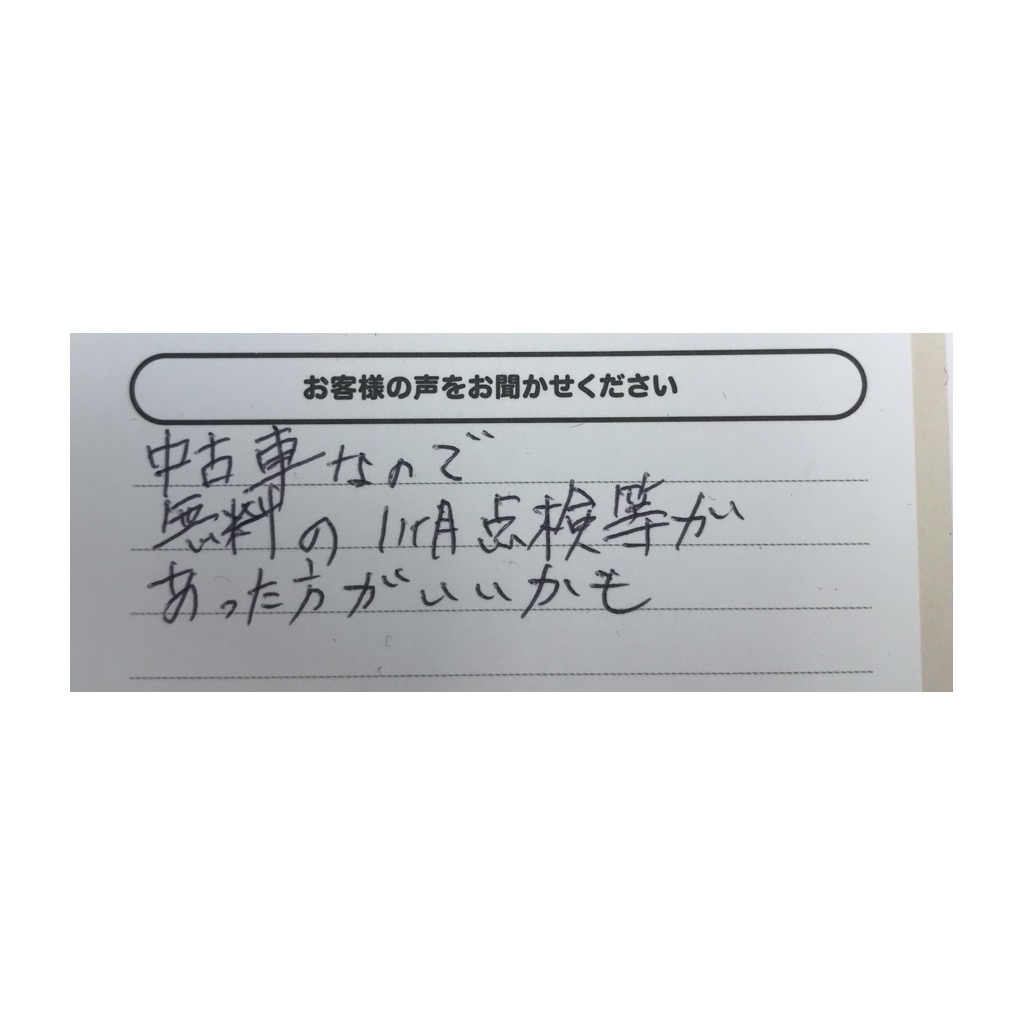 お客様の声をお聞かせください
中古車なので
無料の1ヶ月点検等が
あった方がいいかも